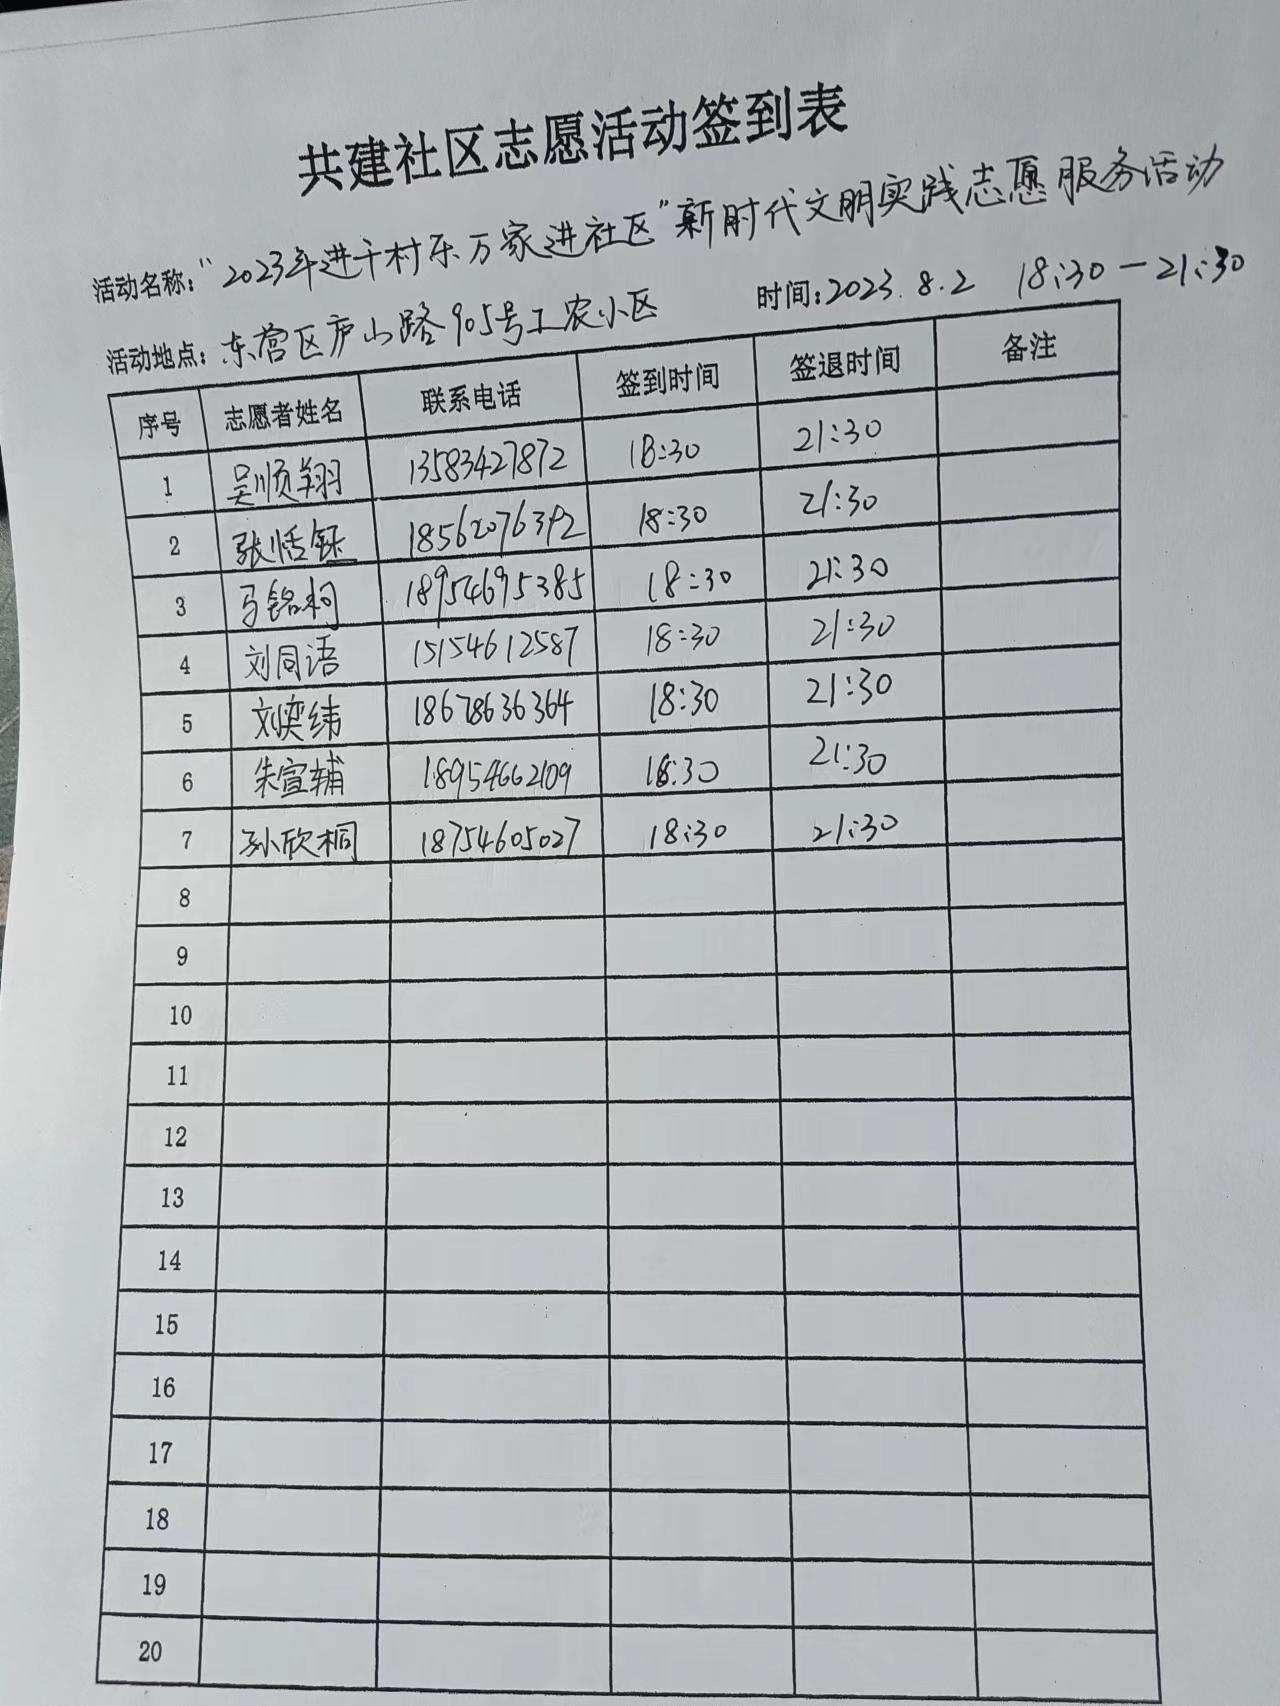 共建社区志愿活动签到表
活动名称："2023年进千村乐万家进社区"新时代文明实践志愿服务活动
活动地点：东营区庐山路905号工农小区 时间：2023.8.2 18:30—21:30
序号 志愿者姓名 联系电话 签到时间 签退时间 备注
1 吴顺翔 13583427872 18:30 21:30
2 张恬钰 18562076392 18:30 21:30
3 马铭柯 18954695385 18:30 21:30
4 刘同语 15154612587 18:30 21:30
5 刘奕纬 18678636364 18:30 21:30
6 朱宣辅 18954662109 18:30 21:30
7 孙欣桐 18754605027 18:30 21:30
8
9
10
11
12
13
14
15
16
17
18
19
20